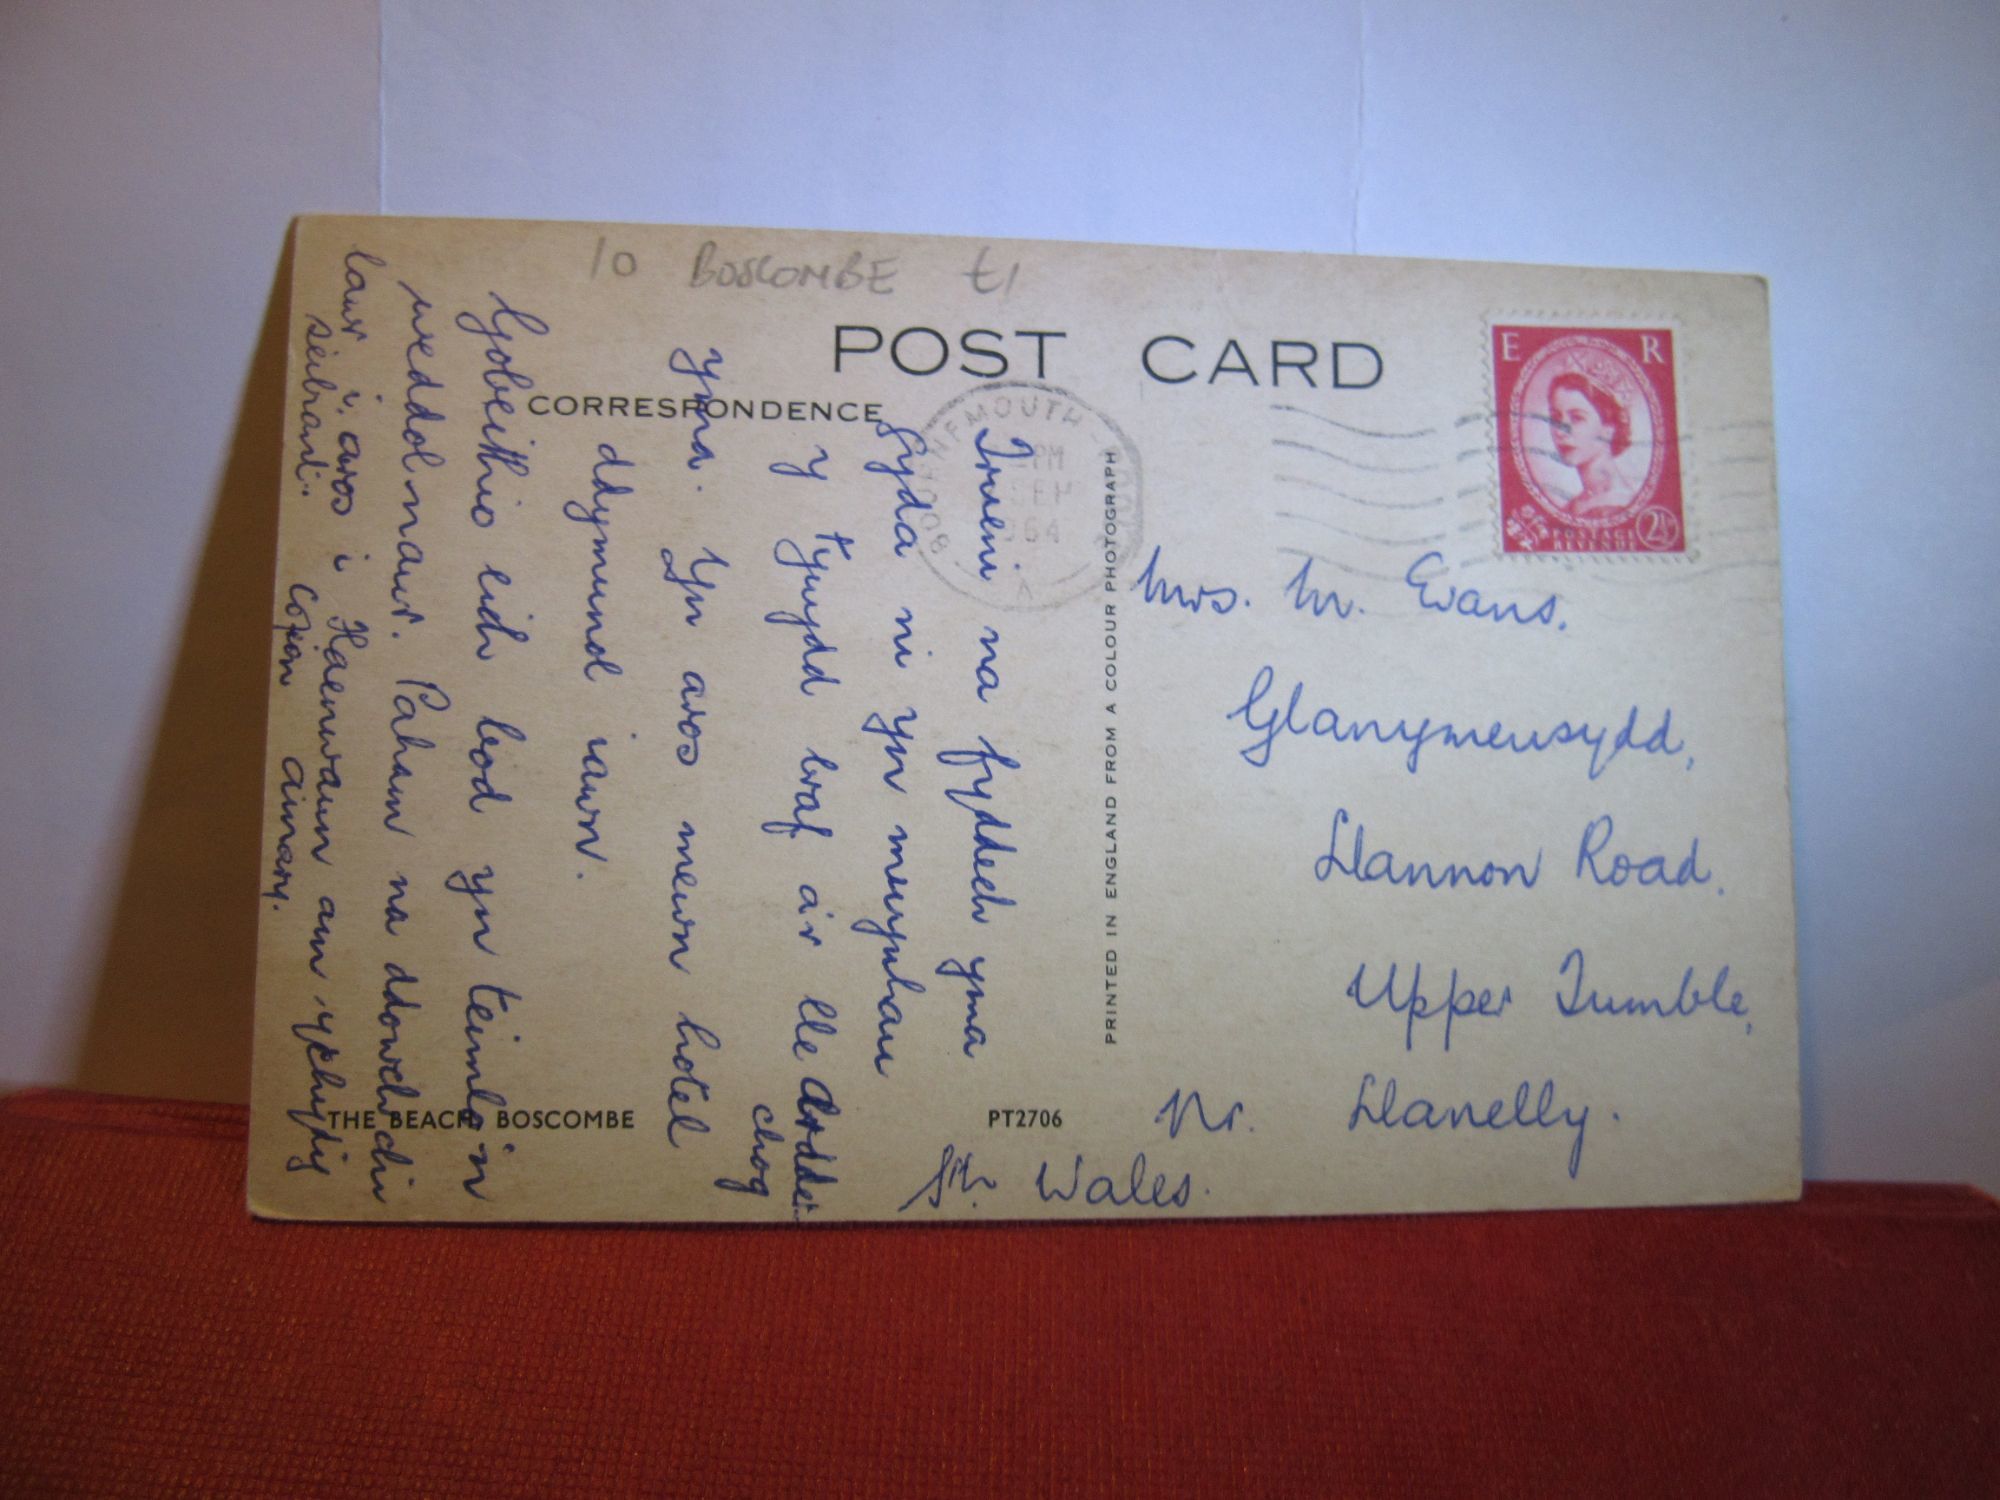 10 BOSCOMBE £1
POST CARD
CORRESPONDENCE
E R
POSTAGE
REVENUE
2½D
BOURNEMOUTH - POOLE
PM
SEP
1964
A
Trueni na fyddech yma
Gyda ni yn mwynhau
y tywydd braf a'r lle ardder-
chog
yma. Yn aros mewn hotel
ddymunol iawn.
Gobeithio eich bod yn teimlo'n
weddol nawr. Paham na ddowch chi
lawr i aros i Haenwaun am ychydig
seibiant. Cofion Ainary.
PRINTED IN ENGLAND FROM A COLOUR PHOTOGRAPH
Mrs. M. Evans.
Glanymeusydd,
Llannon Road.
Upper Tumble,
Nr. Llanelly.
Sth. Wales.
THE BEACH, BOSCOMBE
PT2706